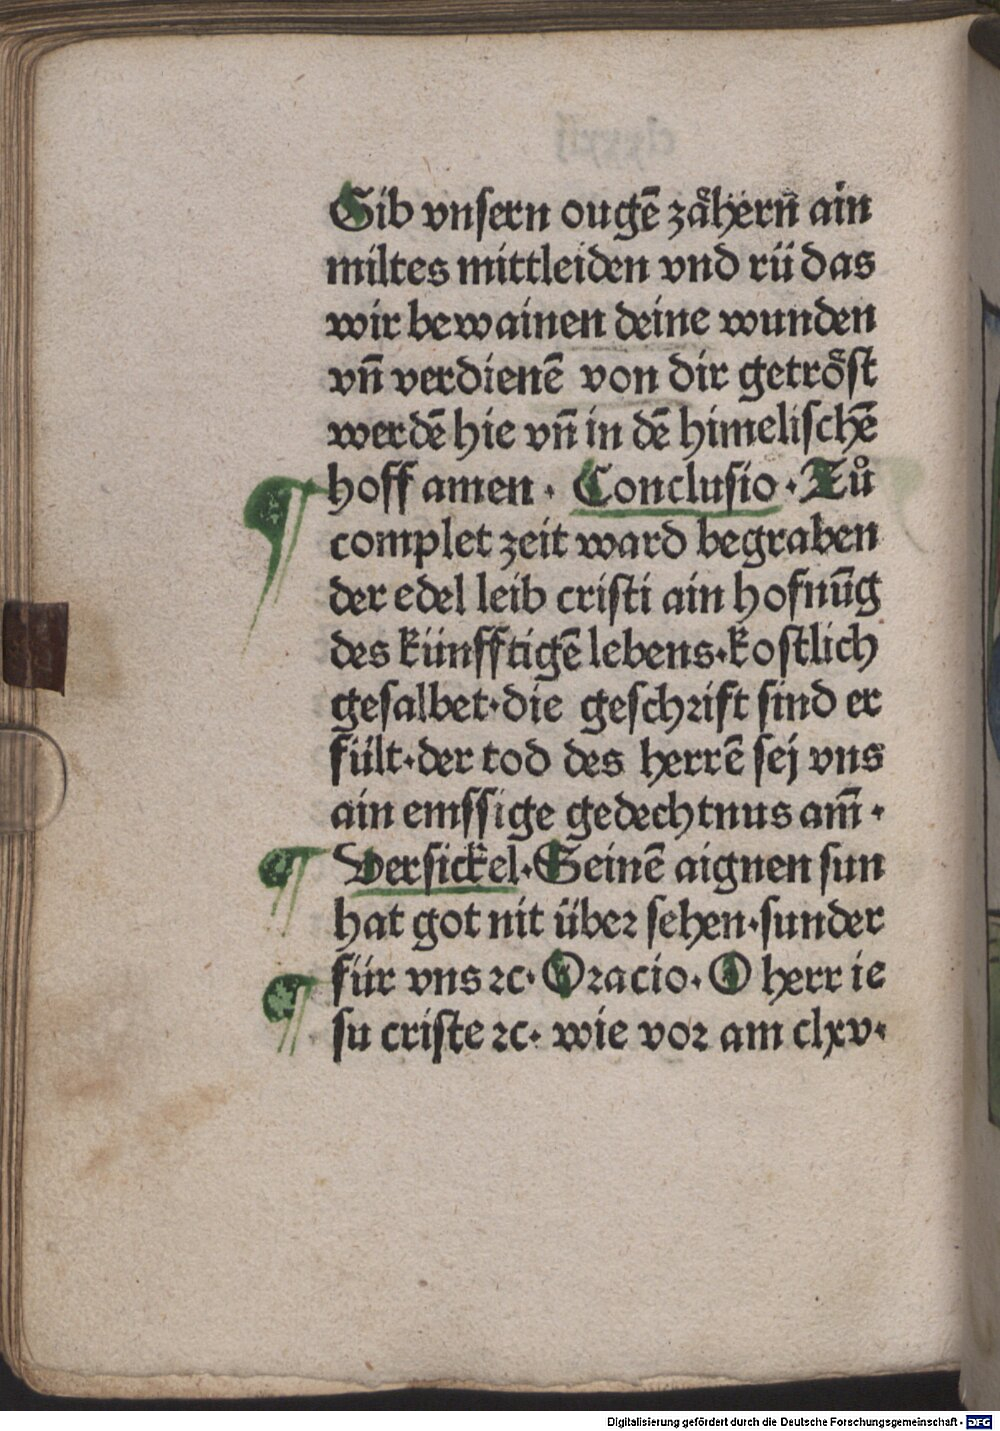 Gib vnſern ougē zaͤhern̄ ain
miltes mittleiden vnd rü das
wir bewainen deine wunden
vn̄ verdienē von dir getroͤſt
werdē hie vn̄ in dē himeliſchē
hoff amen · Concluſio · Zů
complet zeit ward begraben
der edel leib criſti ain hofnūg
des künfftigē lebens · koſtlich
geſalbet · die geſchꝛift ſind er
fült · der tod des herrē ſej vns
ain emſſige gedechtnus am̄ ·
Verſickel · Seinē aignen ſun
hat got nit übeꝛ ſehen · ſunder
für vns ꝛc · Oꝛacio · O herr ie
ſu criſte ꝛc · wie voꝛ am clxv ·
Digitalisierung gefördert durch die Deutsche Forschungsgemeinschaft - DFG